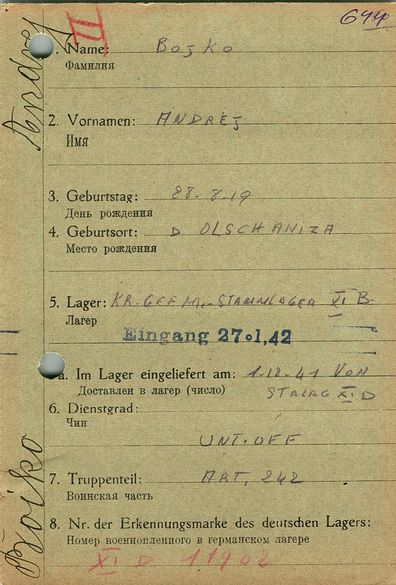 644
II
. Name: Bojko
Фамилия
2. Vornamen: ANDREJ
Имя
3. Geburtstag: 28.8.19
День рождения
4. Geburtsort: D OLSCHANIZA
Место рождения
5. Lager: KR. GEF M.-STAMMLAGER XI B
Лагер
Eingang 27.1.42
a. Im Lager eingeliefert am: 1.12-41 VON
Доставлен в лагер (число) STALAG XI D
6. Dienstgrad:
Чин
UNT. OFF
7. Truppenteil: ART, 242
Воинская часть
8. Nr. der Erkennungsmarke des deutschen Lagers:
Номер военнопленного в германском лагере
XI D 11902
Boiko
Andrej